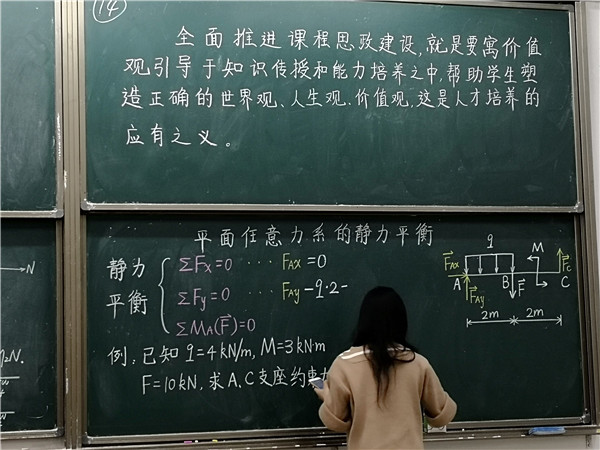 14
全面推进课程思政建设,就是要寓价值
观引导于知识传授和能力培养之中,帮助学生塑
造正确的世界观、人生观、价值观,这是人才培养的
应有之义。
平面任意力系的静力平衡
静力
平衡
ΣFx=0 ··· FAx=0
ΣFy=0 ··· FAy-q·2-
ΣMA(F)=0
例:已知 q=4kN/m, M=3kN·m
F=10kN, 求A、C支座约束
q
M
FAx
FC
A
B
F
C
FAy
2m
2m
N